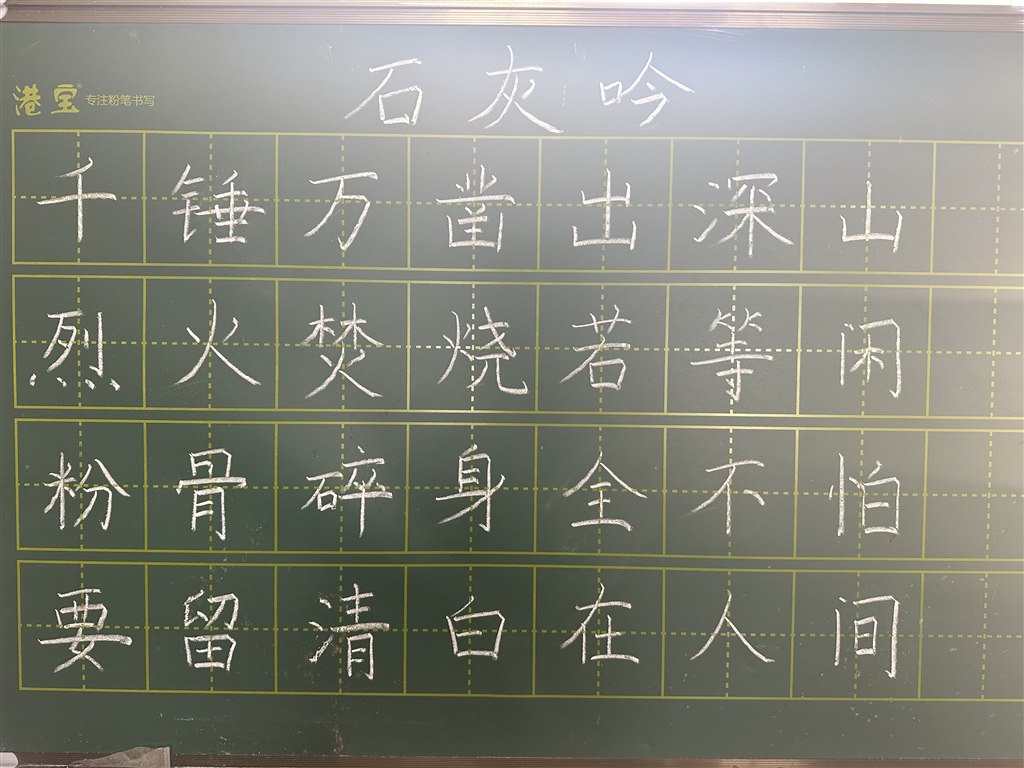 石灰吟
港宝 专注粉笔书写
千锤万凿出深山
烈火焚烧若等闲
粉骨碎身全不怕
要留清白在人间